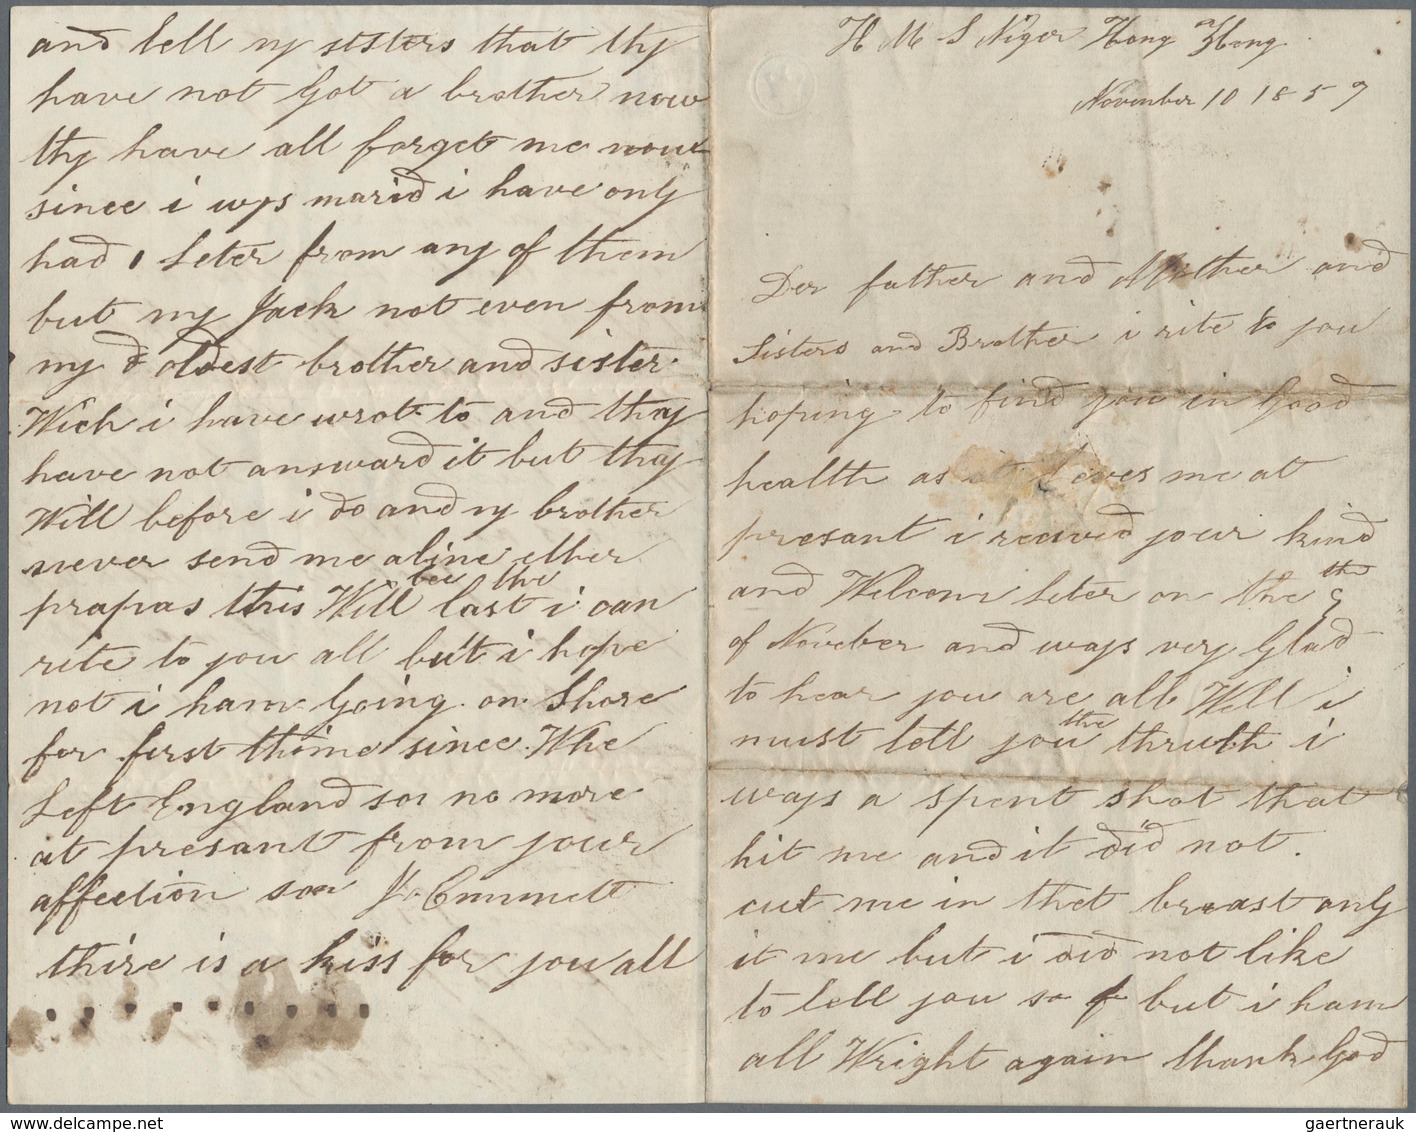 H M S Niger Hong Kong
November 10 1857
Der father and Mother and
Sisters and Brother i rite to you
hoping to find you in Good
health as it Leves me at
presant i receved your kind
and Welcom Leter on the 9 the
of Noveber and ways very Glad
to hear you are all Well i
must tell you the thruth i
ways a spent shot that
hit me and it did not.
cut me in thet breast only
it me but i did not like
to tell you so but i ham
all Wright again thank God
and tell my sisters that thy
have not Got a brother now
thy have all forget me now
since i wys marid i have only
had 1 Leter from any of them
but my Jack not even from
my oldest brother and sister.
Wich i have wrot to and thay
have not answard it but thay
Will before i do and my brother
never send me a line ether
prapas this Will bee the last i can
rite to you all but i hope
not i ham Going on Shore
for first thime since Whe
Left England so no more
at presant from your
affection son J. Emmett
thire is a kiss for you all
gaertnerauk @ delcampe.net